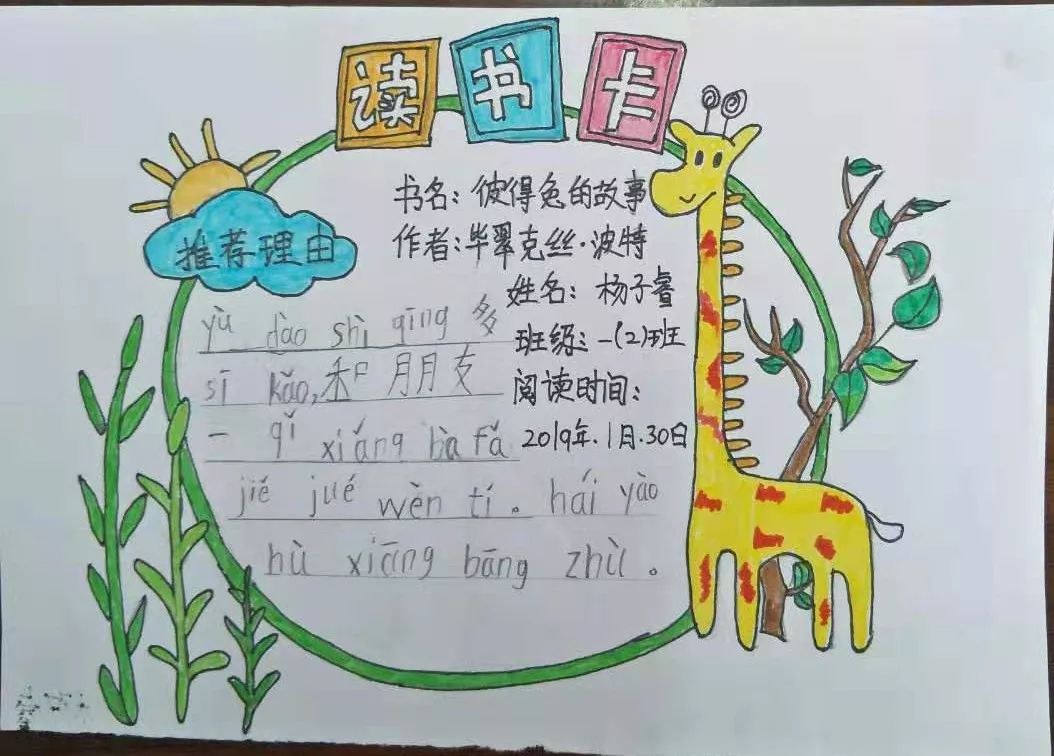 读书卡
书名：彼得兔的故事
作者：毕翠克丝·波特
姓名：杨子睿
班级：一(2)班
阅读时间：
2019年.1月.30日
推荐理由
yù dào shì qīng 多
sī kǎo，和朋友
一 qǐ xiǎng bàn fǎ
jiě jué wèn tí。hái yào
hù xiāng bāng zhù。